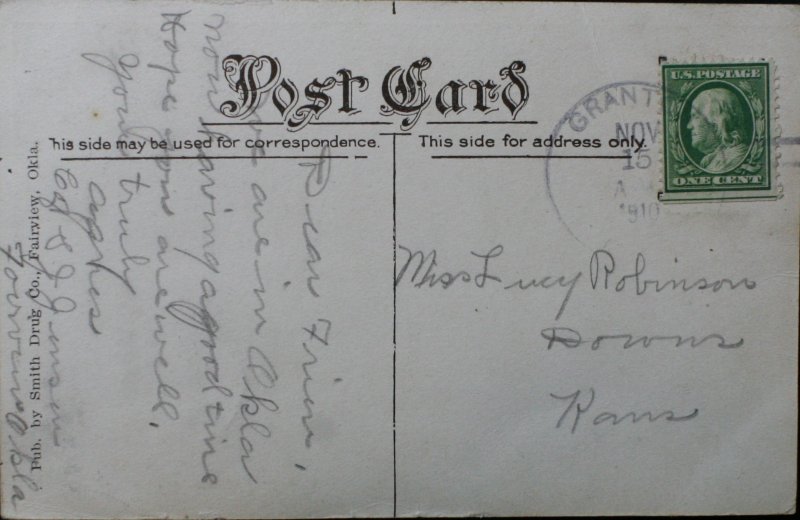 Post Card
This side may be used for correspondence.
This side for address only.
U.S. POSTAGE
ONE CENT
GRANT
NOV
15
A
1910
Miss Lucy Robinson
Downs
Kans
Dear Frien,
we are in Okla
now having a good time
Hope you are well.
yours truly
Okla
Pub. by Smith Drug Co., Fairview, Okla.